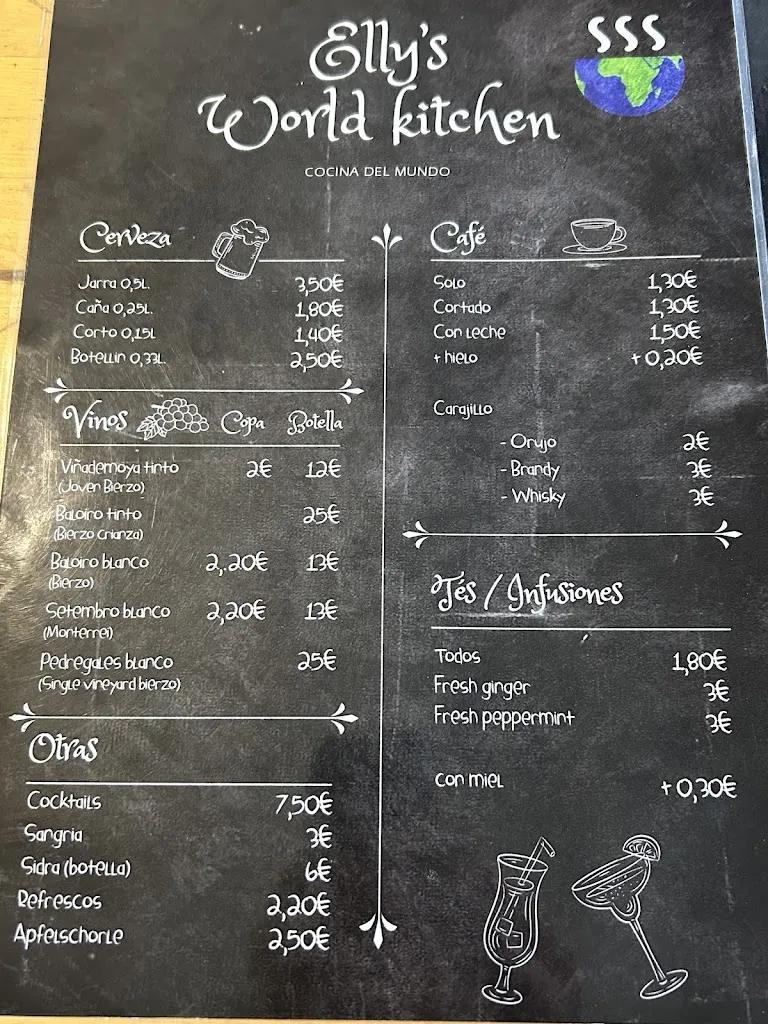 Elly's
World kitchen
COCINA DEL MUNDO
Cerveza
Jarra 0,5L. 3,50€
Caña 0,25L. 1,80€
Corto 0,15L 1,40€
Botellin 0,33L. 2,50€
Vinos Copa Botella
Viñademoya tinto 2€ 12€
(Joven Bierzo)
Baloiro tinto 25€
(Bierzo Crianza)
Baloiro blanco 2,20€ 13€
(Bierzo)
Setembro blanco 2,20€ 13€
(Monterrei)
Pedregales blanco 25€
(Single vineyard bierzo)
Otras
Cocktails 7,50€
Sangria 3€
Sidra (botella) 6€
Refrescos 2,20€
Apfelschorle 2,50€
Café
Solo 1,30€
Cortado 1,30€
Con leche 1,50€
+ hielo +0,20€
Carajillo
- Orujo 2€
- Brandy 3€
- Whisky 3€
Tés / Infusiones
Todos 1,80€
Fresh ginger 3€
Fresh peppermint 3€
con miel +0,30€